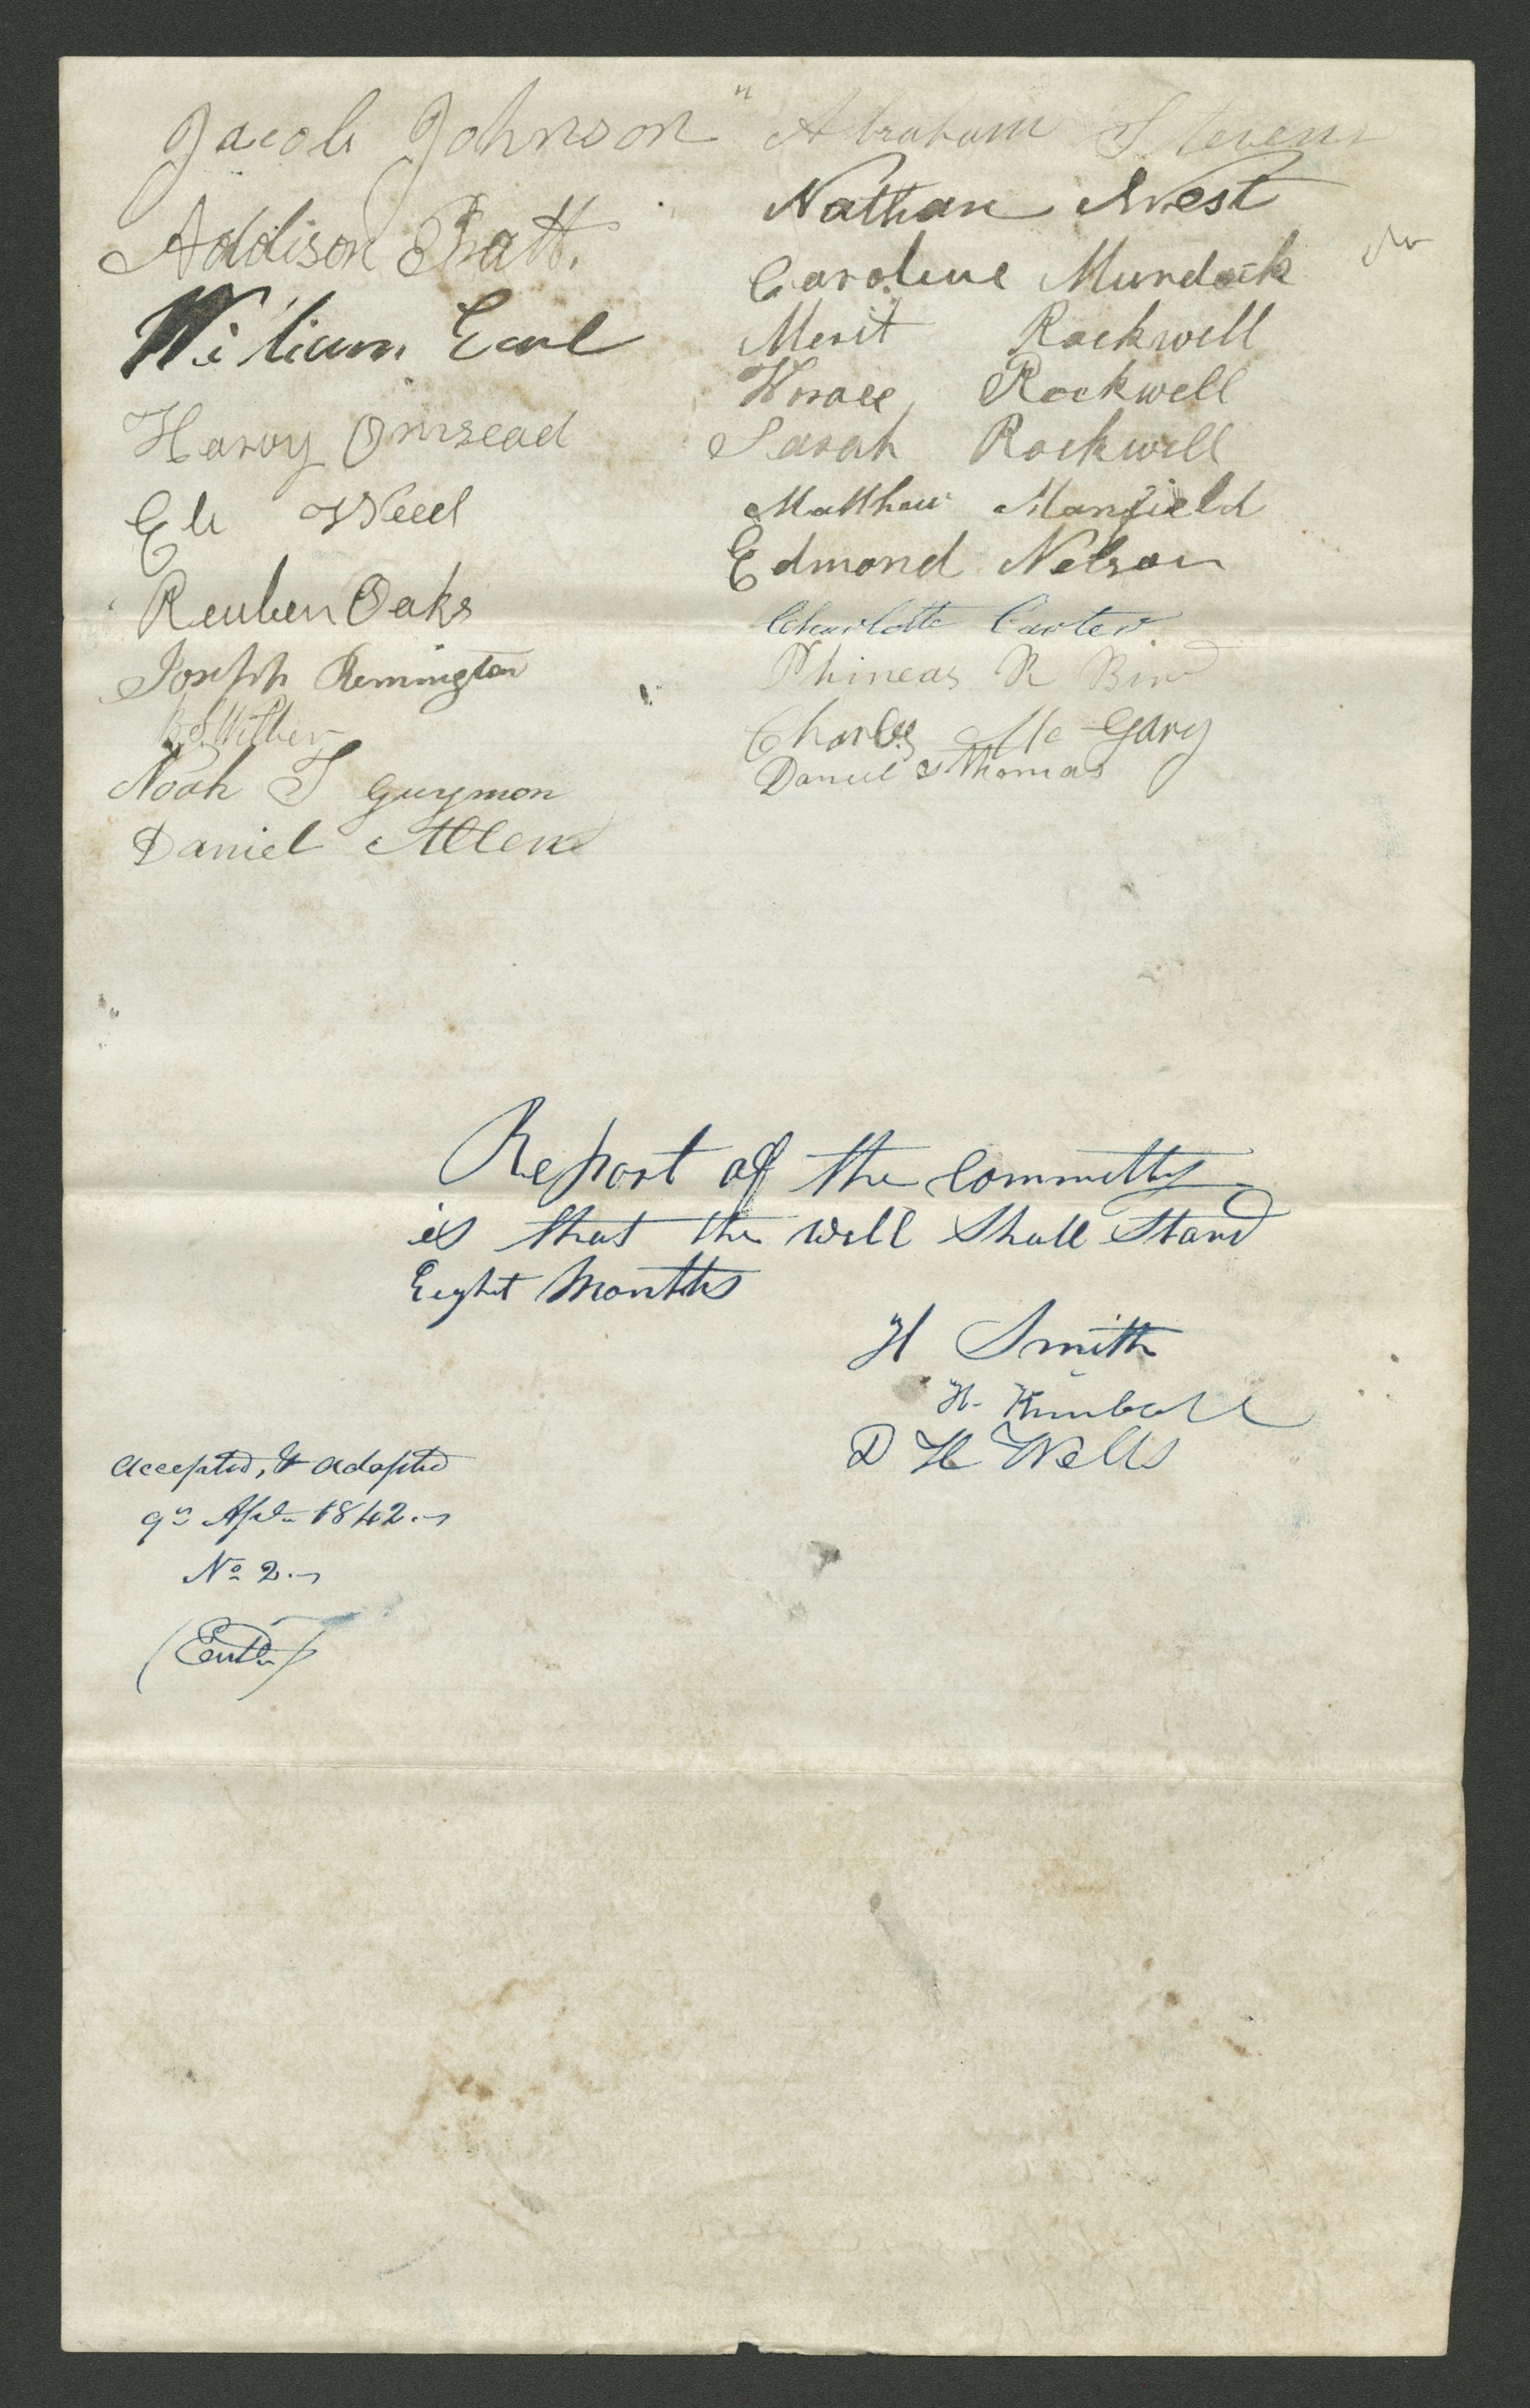 Jacob Johnson
Addison Pratt.
William Earl
Harvy Omsead
Eli Weed
Reuben Oaks
Joseph Remington
B S Wilber
Noah T Guymon
Daniel Allen
" Abraham Stevens
Nathan West
Caroline Murdock
Merit Rockwell
Horace Rockwell
Sarah Rockwell
Matthew Manfield
Edmond Nelson
Charlotte Carter
Phineas R Bird
Charles Mc Gary
Daniel S Thomas
Report of the Committy
is that the well Shall Stand
Eight Months
H Smith
H. Kimball
D H Wells
Accepted, & adopted
9th Apl. 1842.
No 2.